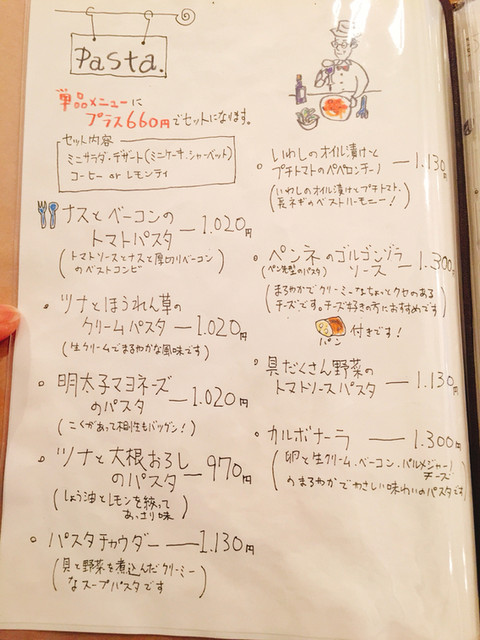 Pasta.
単品メニューに
プラス660円でセットになります。
セット内容
ミニサラダ・デザート(ミニケーキ、シャーベット)
コーヒー or レモンティ
ナスとベーコンの
トマトパスタ ― 1.020円
(トマトソースとナスと厚切りベーコン
のベストコンビ)
ツナとほうれん草の
クリームパスタ ― 1.020円
(生クリームでまろやかな風味です)
明太子マヨネーズ
のパスタ ― 1.020円
(こくがあって相性もバツグン!)
ツナと大根おろし
のパスタ ― 970円
(しょう油とレモンを絞って
あっさり味)
パスタチャウダー ― 1.130円
(貝と野菜を煮込んだクリーミー
なスープパスタです)
いわしのオイル漬けと
プチトマトのペペロンチーノ ― 1.130円
(いわしのオイル漬けとプチトマト、
長ネギのベストハーモニー!)
ペンネのゴルゴンゾラ
(ペン先型のパスタ) ソース ― 1.300円
(まろやかでクリーミーなちょっとクセのある
チーズです。チーズ好きの方におすすめです)
パン 付きです!
具だくさん野菜の
トマトソースパスタ ― 1.130円
カルボナーラ ― 1.300円
(卵と生クリーム、ベーコン、パルメジャーノ
チーズ
のまろやかでやさしい味わいのパスタです)